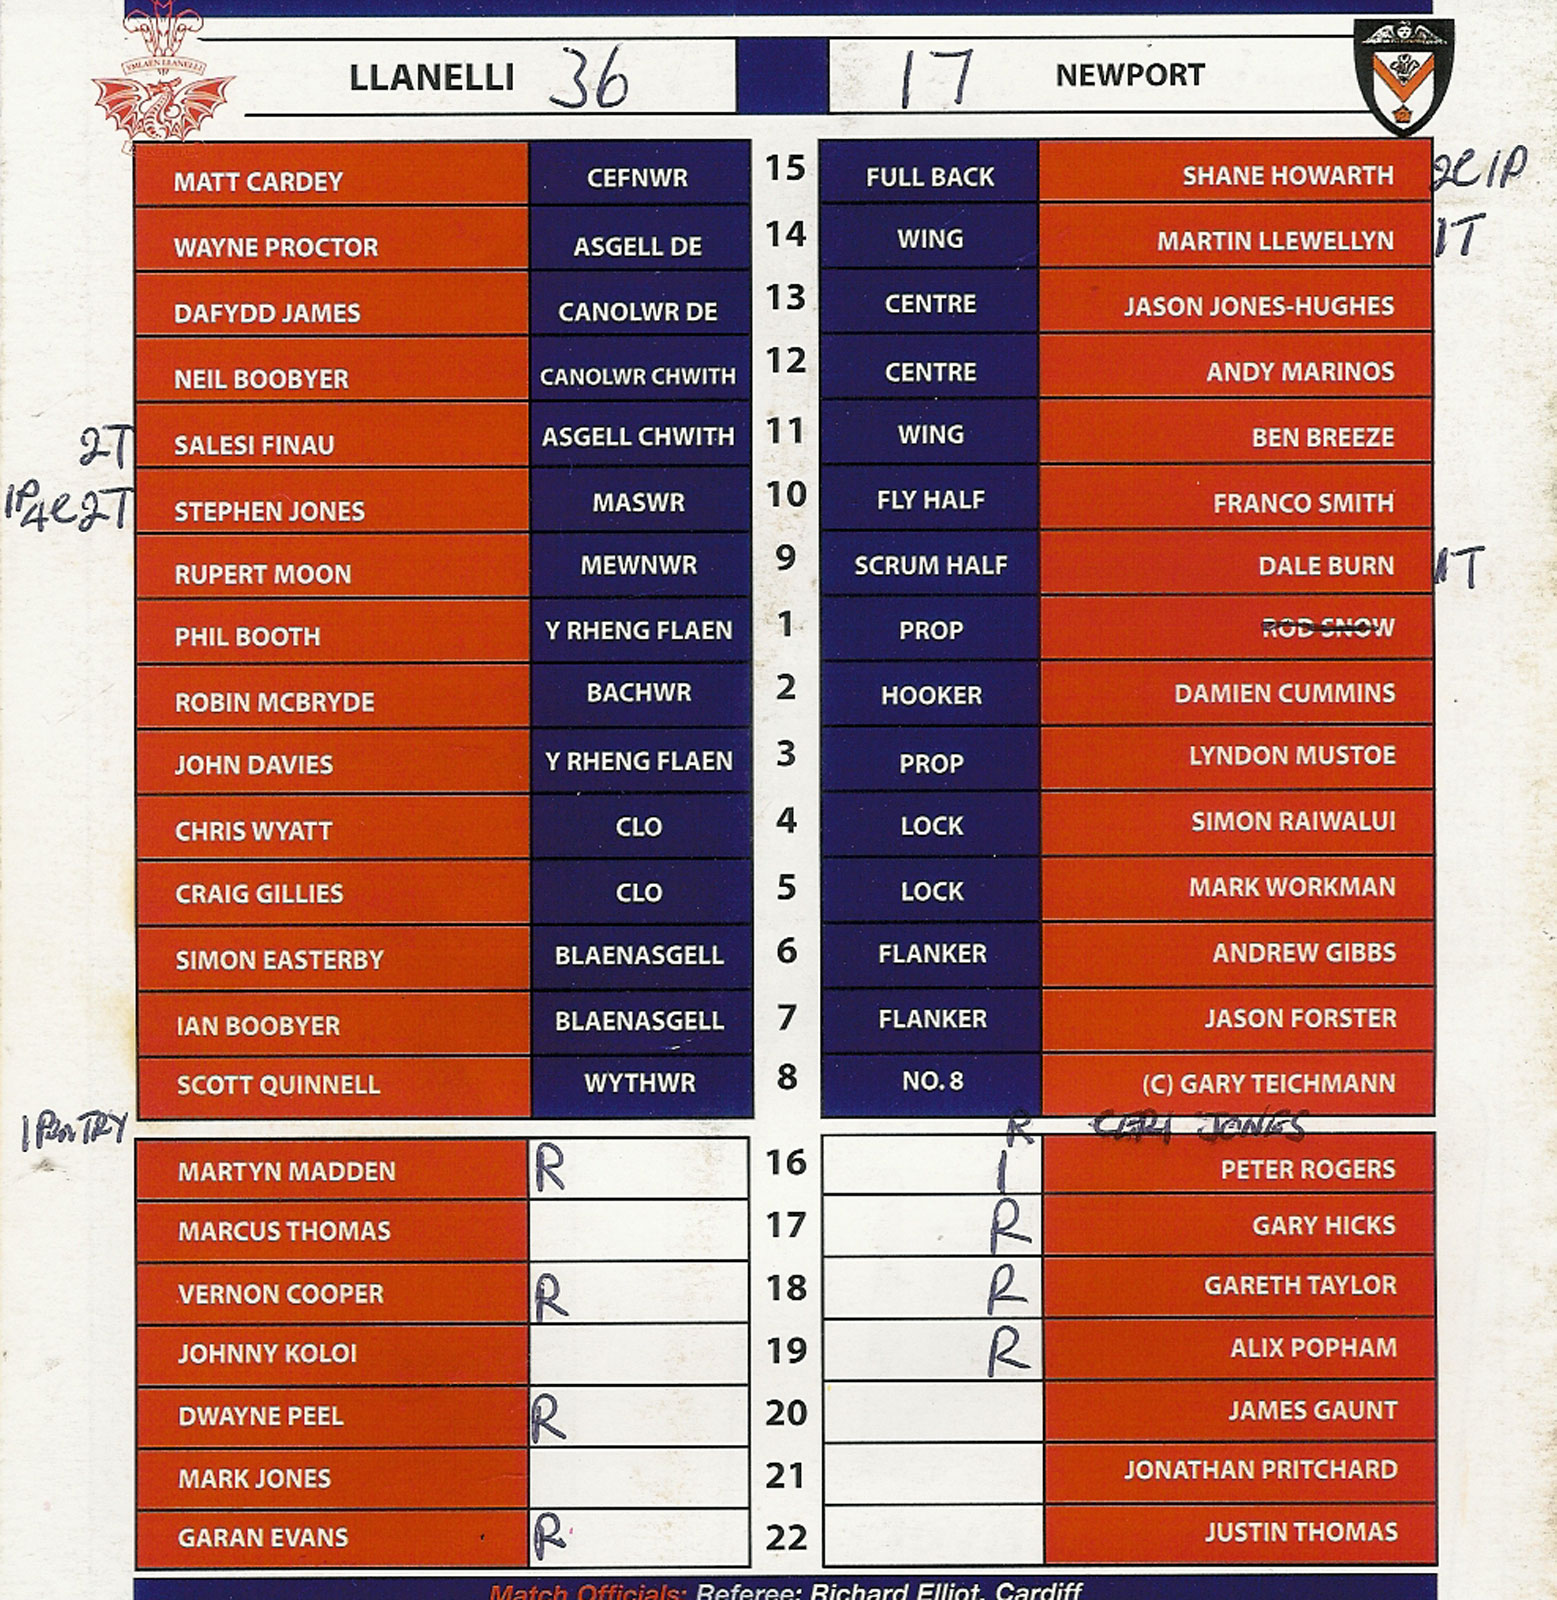 YMLAEN LLANELLI
LLANELLI 36 17 NEWPORT
MATT CARDEY CEFNWR 15 FULL BACK SHANE HOWARTH 2C 1P
WAYNE PROCTOR ASGELL DE 14 WING MARTIN LLEWELLYN 1T
DAFYDD JAMES CANOLWR DE 13 CENTRE JASON JONES-HUGHES
NEIL BOOBYER CANOLWR CHWITH 12 CENTRE ANDY MARINOS
2T SALESI FINAU ASGELL CHWITH 11 WING BEN BREEZE
1P 4C 2T STEPHEN JONES MASWR 10 FLY HALF FRANCO SMITH
RUPERT MOON MEWNWR 9 SCRUM HALF DALE BURN 1T
PHIL BOOTH Y RHENG FLAEN 1 PROP ROD SNOW
ROBIN MCBRYDE BACHWR 2 HOOKER DAMIEN CUMMINS
JOHN DAVIES Y RHENG FLAEN 3 PROP LYNDON MUSTOE
CHRIS WYATT CLO 4 LOCK SIMON RAIWALUI
CRAIG GILLIES CLO 5 LOCK MARK WORKMAN
SIMON EASTERBY BLAENASGELL 6 FLANKER ANDREW GIBBS
IAN BOOBYER BLAENASGELL 7 FLANKER JASON FORSTER
SCOTT QUINNELL WYTHWR 8 NO. 8 (C) GARY TEICHMANN
1 Pen TRY R CERI JONES
MARTYN MADDEN R 16 1 PETER ROGERS
MARCUS THOMAS 17 R GARY HICKS
VERNON COOPER R 18 R GARETH TAYLOR
JOHNNY KOLOI 19 R ALIX POPHAM
DWAYNE PEEL R 20 JAMES GAUNT
MARK JONES 21 JONATHAN PRITCHARD
GARAN EVANS R 22 JUSTIN THOMAS
Match Officials: Referee: Richard Elliot, Cardiff